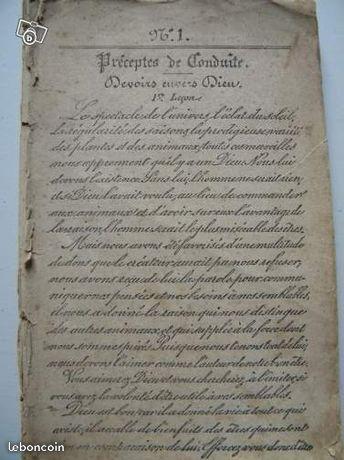 N.º 1.
Préceptes de Conduite.
Devoirs envers Dieu.
1re Leçon
Le spectacle de l'univers, l'éclat du soleil,
la régularité des saisons, la prodigieuse variété
des plantes et des animaux, toutes ces merveilles
nous apprennent qu'il y a un Dieu. Nous lui
devons l'existence. Sans lui, l'homme ne serait rien,
et si Dieu l'avait voulu, au lieu de commander
aux animaux et d'avoir sur eux l'avantage de
la raison, l'homme serait le plus misérable des êtres.
Mais nous avons été favorisés d'une multitude
de dons que le créateur aurait pu nous refuser;
nous avons reçu de lui la parole pour commu-
niquer nos pensées et nos besoins à nos semblables,
il nous a donné la raison qui nous distingue
des autres animaux, et qui supplée à la force dont
nous sommes privés. Puisque nous tenons tout de lui,
nous devons l'aimer comme l'auteur de notre être.
Vous aimerez Dieu et vous chercherez à l'imiter, si
vous avez la volonté d'être utile à vos semblables.
Dieu est bon car il a donné la vie à tout ce qui
existe; il accable de bienfaits des êtres qui ne sont
en comparaison de lui. Efforcez-vous donc d'être
leboncoin